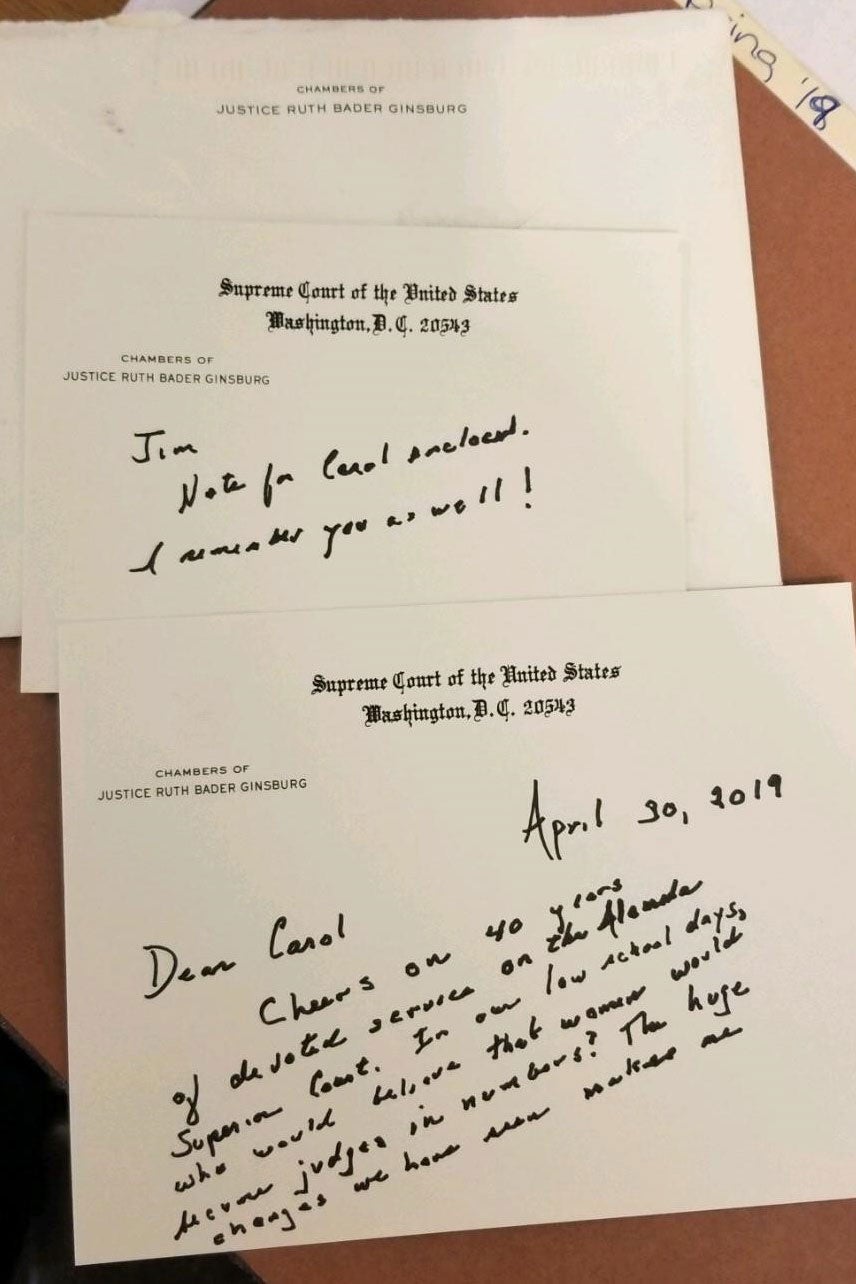 ing '18
CHAMBERS OF
JUSTICE RUTH BADER GINSBURG
Supreme Court of the United States
Washington, D.C. 20543
CHAMBERS OF
JUSTICE RUTH BADER GINSBURG
Jim
Note for Carol enclosed.
I remember you as well!
Supreme Court of the United States
Washington, D.C. 20543
CHAMBERS OF
JUSTICE RUTH BADER GINSBURG
April 30, 2019
Dear Carol
Cheers on 40 years
of devoted service on the Alameda
Superior Court. In our law school days,
who would believe that women would
become judges in numbers? The huge
changes we have seen makes me